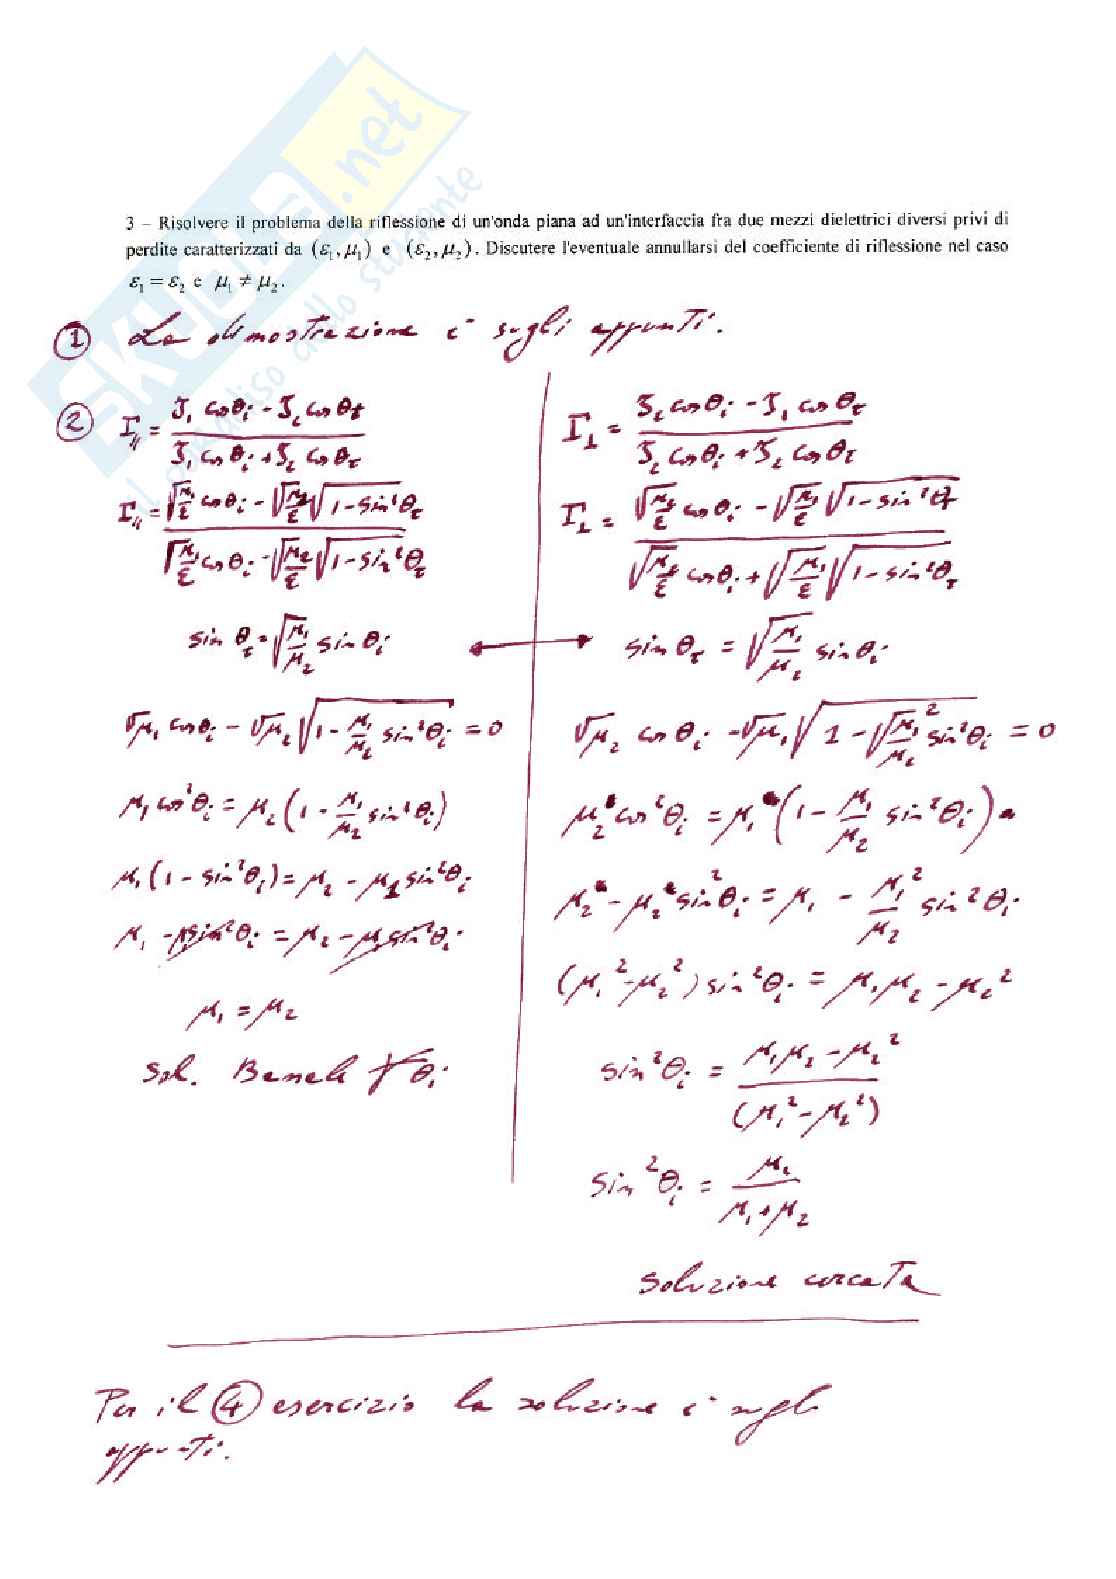 SKUOLA.net
il paradiso dello studente
3 – Risolvere il problema della riflessione di un'onda piana ad un'interfaccia fra due mezzi dielettrici diversi privi di
perdite caratterizzati da (ε₁,μ₁) e (ε₂,μ₂). Discutere l'eventuale annullarsi del coefficiente di riflessione nel caso
ε₁ = ε₂ e μ₁ ≠ μ₂.
① La dimostrazione è sugli appunti.
② Γ// = (ζ₁ cosθi - ζ₂ cosθt) / (ζ₁ cosθi + ζ₂ cosθt)
Γ// = (√(μ₁/ε) cosθi - √(μ₂/ε) √(1-sin²θt)) / (√(μ₁/ε) cosθi - √(μ₂/ε) √(1-sin²θt))
sin θt = √(μ₁/μ₂) sin θi
√μ₁ cosθi - √μ₂ √(1 - μ₁/μ₂ sin²θi) = 0
μ₁ cos²θi = μ₂ (1 - μ₁/μ₂ sin²θi)
μ₁ (1 - sin²θi) = μ₂ - μ₁ sin²θi
μ₁ - μ₁sin²θi = μ₂ - μ₁sin²θi
μ₁ = μ₂
Sol. Banale ∀θi
Γ⊥ = (ζ₂ cosθi - ζ₁ cosθt) / (ζ₂ cosθi + ζ₁ cosθt)
Γ⊥ = (√(μ₂/ε) cosθi - √(μ₁/ε) √(1-sin²θt)) / (√(μ₂/ε) cosθi + √(μ₁/ε) √(1-sin²θt))
sin θt = √(μ₁/μ₂) sin θi
√μ₂ cosθi - √μ₁ √(1 - √(μ₁/μ₂)² sin²θi) = 0
μ₂ cos²θi = μ₁ (1 - μ₁/μ₂ sin²θi)
μ₂ - μ₂ sin²θi = μ₁ - μ₁²/μ₂ sin²θi
(μ₁² - μ₂²) sin²θi = μ₁μ₂ - μ₂²
sin²θi = (μ₁μ₂ - μ₂²) / (μ₁² - μ₂²)
sin²θi = μ₂ / (μ₁ + μ₂)
soluzione cercata
Per il ④ esercizio la soluzione è sugli
appunti.